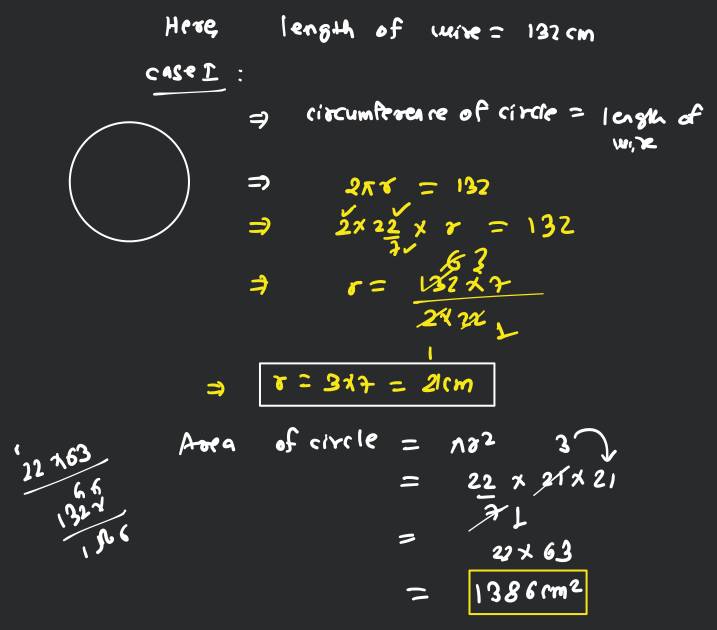 Here, length of wire = 132 cm
case I :
⇒ circumference of circle = length of wire
⇒ 2πr = 132
⇒ 2 × 22/7 × r = 132
6 3
⇒ r = 132 × 7 / 2 × 22
1
1
⇒ r = 3×7 = 21cm
Area of circle = πr2
3
= 22/7 × 21 × 21
1
= 22 × 63
= 1386cm2
22 × 63
66
132×